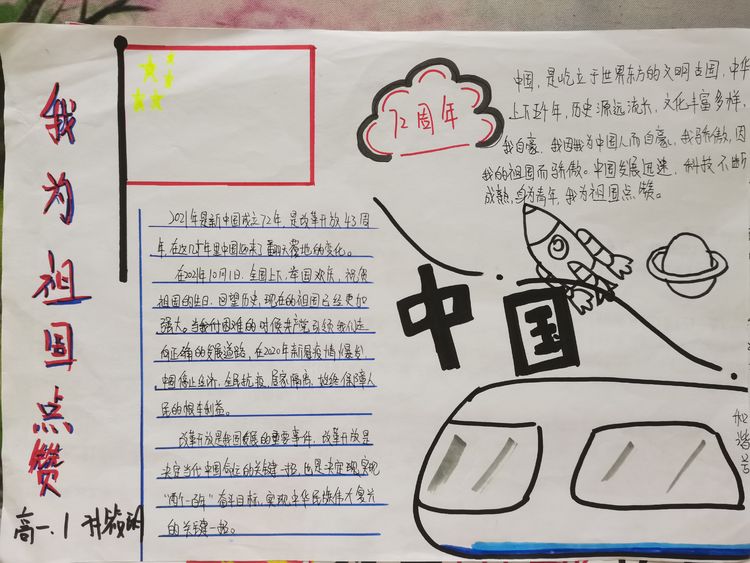 我为祖国点赞
高一.1
72周年
中国，是屹立于世界东方的文明古国，中华
上下五千年，历史源远流长，文化丰富多样，
我自豪，我因我为中国人而自豪，我骄傲，因
我的祖国而骄傲。中国发展迅速，科技不断
成熟，身为青年，我为祖国点赞。
2021年是新中国成立72年，是改革开放43周
年，在这几十年里中国迎来了翻天覆地的变化。
在2021年10月1日，全国上下，举国欢庆，祝贺
祖国的生日，回望历史，现在的祖国已经更加
强大。当我们困难的时候共产党引领我们走
向正确的发展道路，在2020年新冠疫情爆发
中国停止经济，全民抗疫，居家隔离，始终保障人
民的根本利益。
改革开放是我国发展的重要事件，改革开放是
决定当代中国命运的关键一招，也是决定现实现
“两个一百年”奋斗目标，实现中华民族伟大复兴
的关键一招。
中国
和谐号